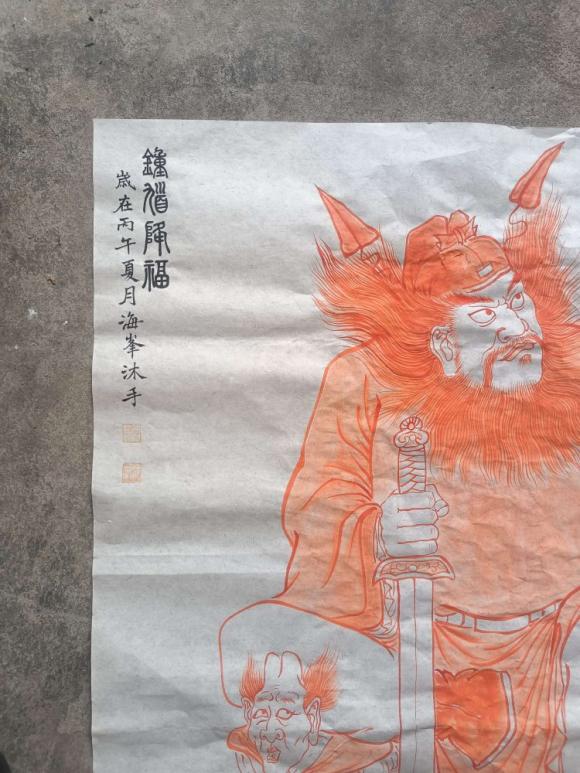 鍾馗降福
歲在丙午夏月海峯沐手